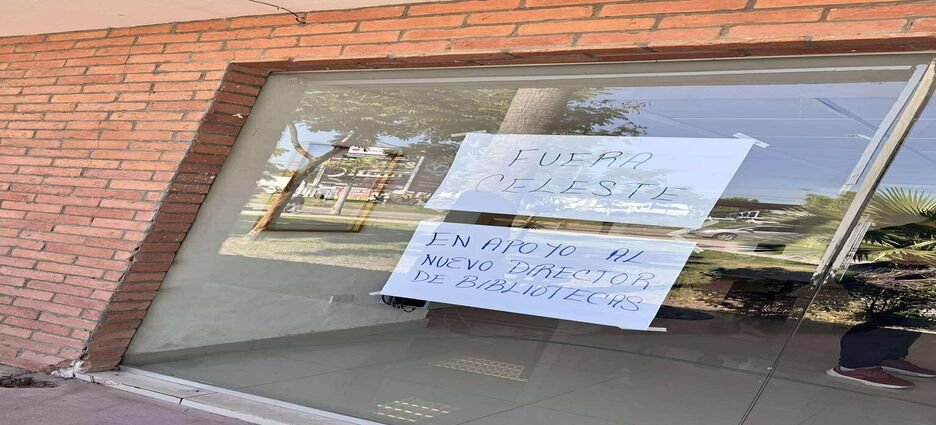 FUERA
CELESTE
EN APOYO AL
NUEVO DIRECTOR
DE BIBLIOTECAS